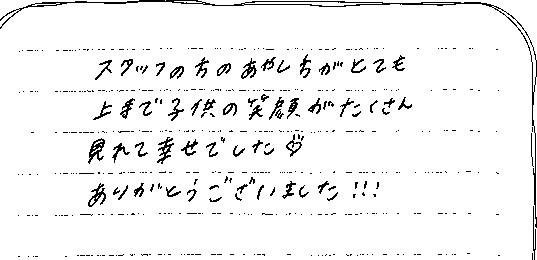 スタッフの方のあやし方がとても
上手で子供の笑顔がたくさん
見れて幸せでした♡
ありがとうございました!!!